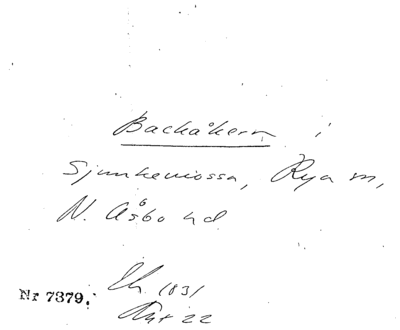 Backåkern i
Sjunkemossa, Rya sn,
N. Åsbo hd
1831
Nr 7379. Akt 22